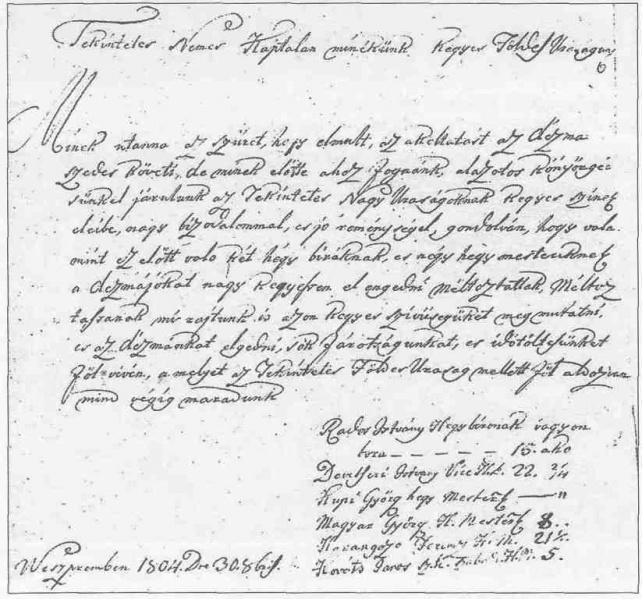 Tekintetes Nemes Káptalan minékünk Kegyes Földes Uraságunk
Minek utanna az szüret, hogy elmult, az akoltatast az dézma
szedes követi, de minek előtte ahoz fognánk, alázatos könyörgé
sünkel járulunk az Tekintetes Nagy Uraságoknak kegyes színe
eleibe, nagy bizodalommal, es jó reménységel, gondolván, hogy vala
mint ez előtt való két hegy biráknak, es négy hegy mestereknek
a dézmájokat nagy kegyessen el engedni méltoztattak, Méltoz
tassanak mi rajtunk is azon kegyes szivüségüket meg mutatni,
es az dézmánkat elgedni, sok fáradságunkat, es időtöltésünket
föl vévén, a melyet az Tekintetes Földes Uraság mellett föl áldozván
mind végig maradunk
Rados Istvány Hegy bironak vagyon
bora — — — — — 15. akó
Istvány Vice 22. 2/4
Kupi Györg hegy Mester — "
Magyar Györg H. Mester 8.
Harangozo Ferencz H. M. 21
Kováts Janos 5.
Weszpremben 1804. Dre 30. 8bis.